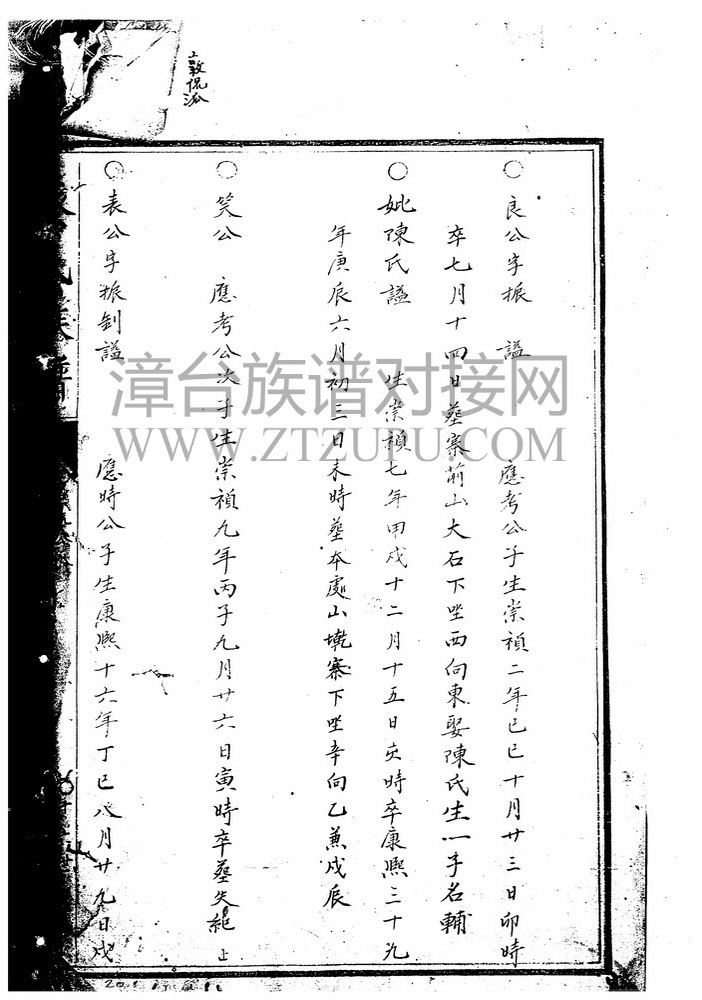 上敦侃派
○良公字振　諡　應考公子生崇禎二年己巳十月廿三日卯時
卒七月十四日塟寨前山大石下坐西向東娶陳氏生一子名輔
○妣陳氏諡　生崇禎七年甲戌十二月十五日亥時卒康熙三十九
年庚辰六月初三日未時塟本處山墘寨下坐辛向乙兼戌辰
○笑公　應考公次子生崇禎九年丙子九月廿六日寅時卒塟失絕 止
○表公字振釗諡　應時公子生康熙十六年丁巳八月廿九日戌
漳台族谱对接网
WWW.ZTZUPU.COM